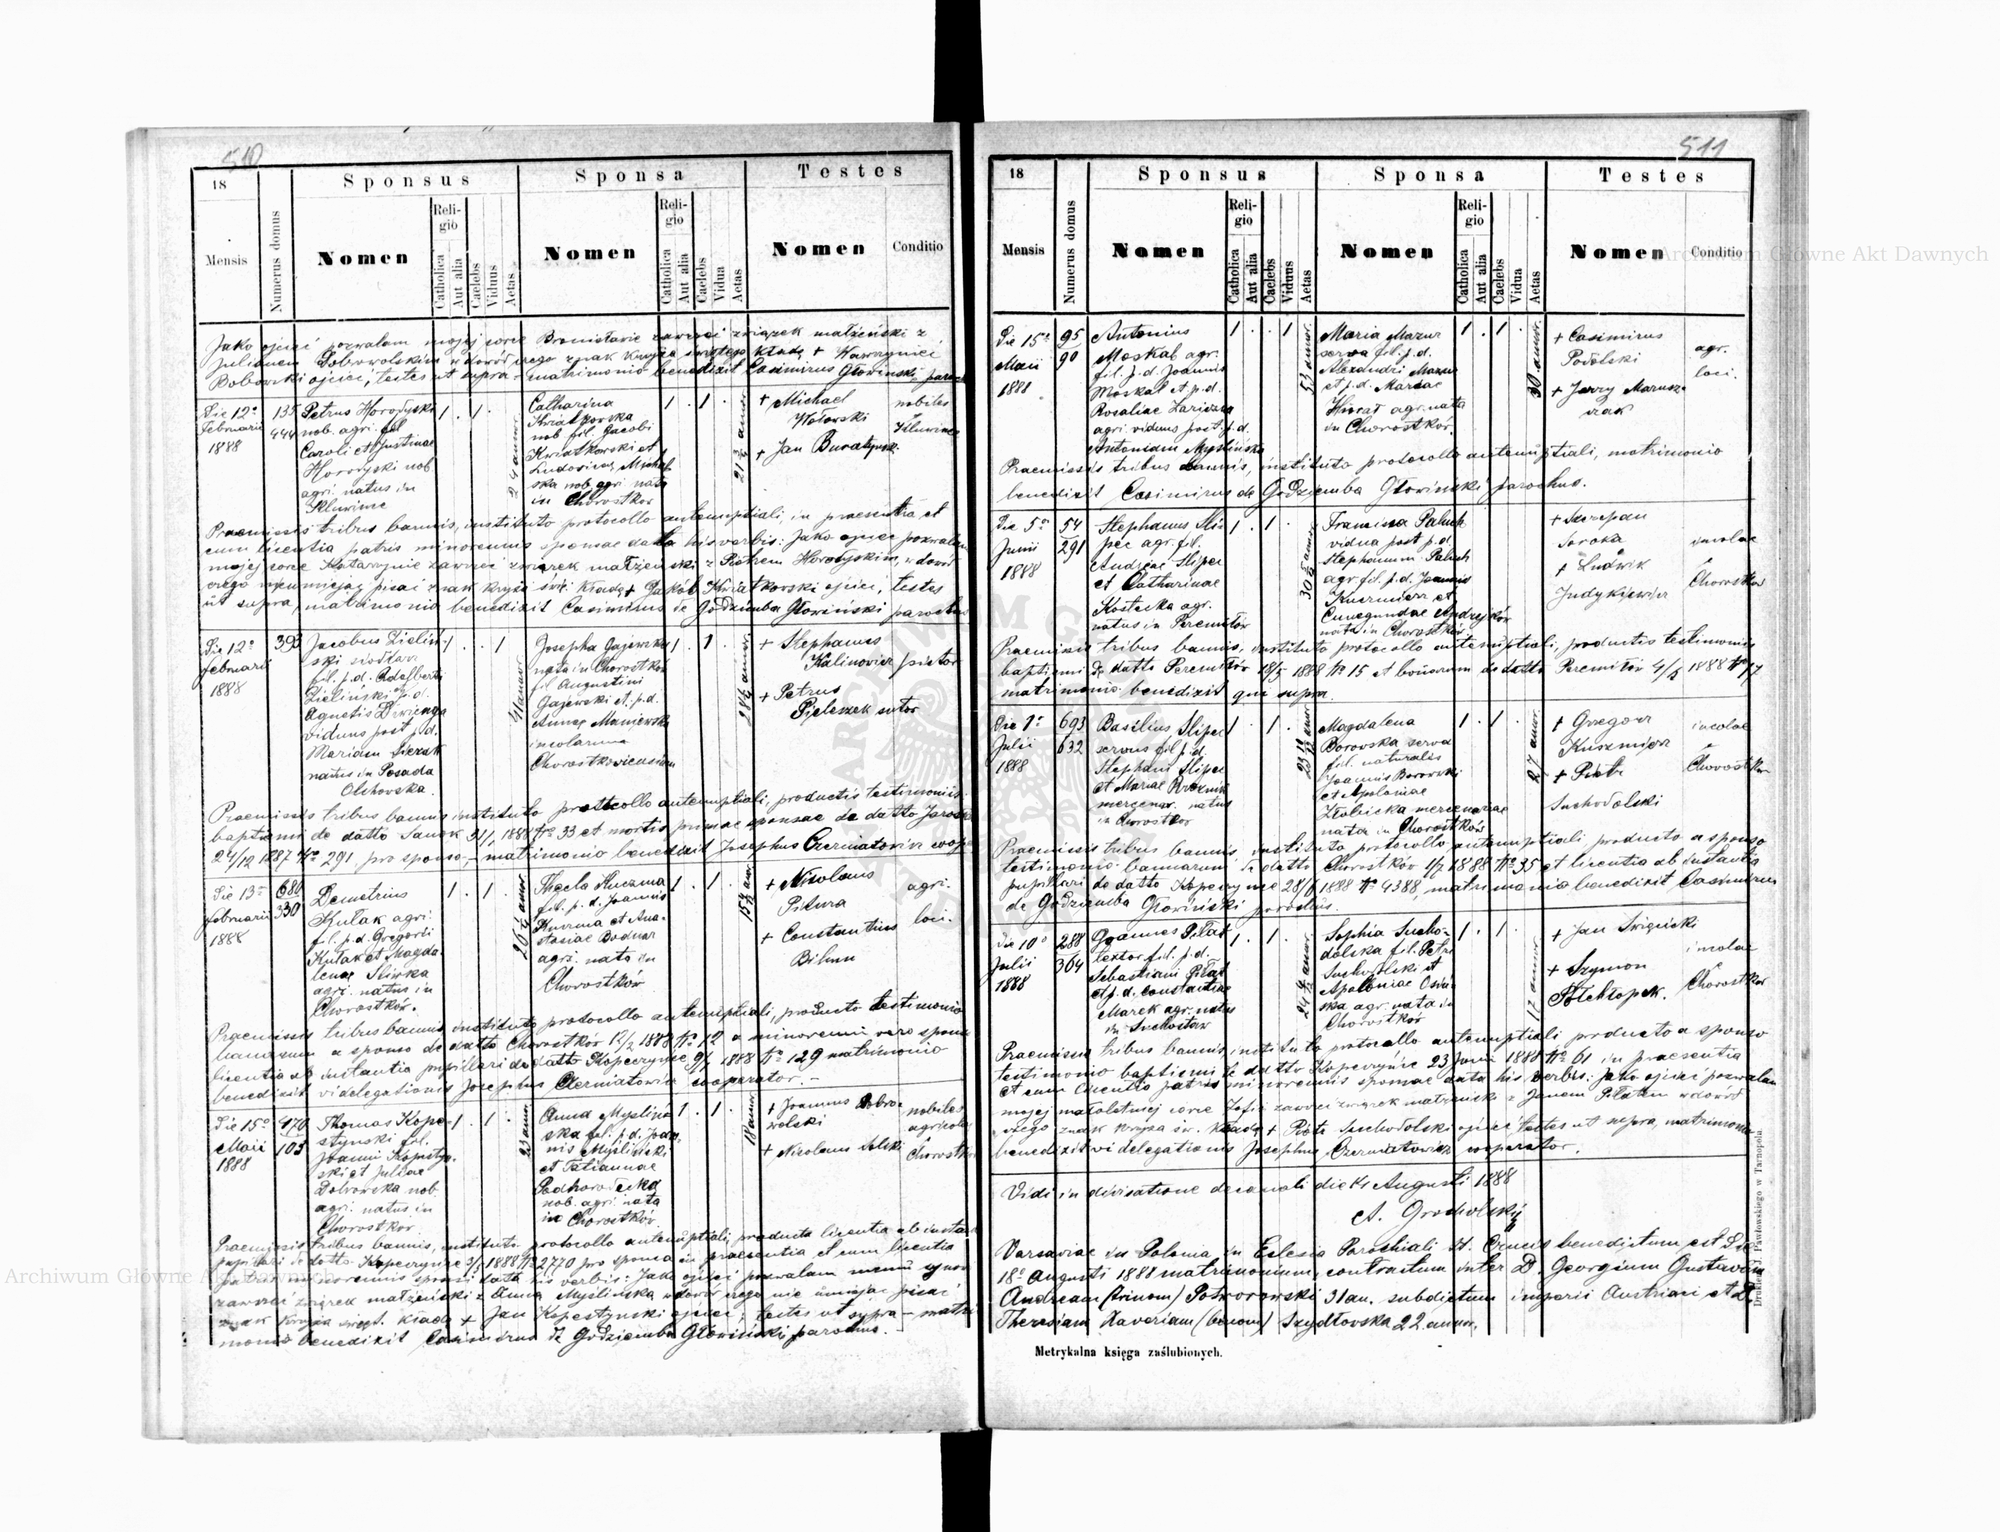 510
18
Sponsus
Sponsa
Testes
Mensis
Numerus domus
Nomen
Religio
Catholica
Aut alia
Caelebs
Viduus
Aetas
Nomen
Religio
Catholica
Aut alia
Caelebs
Vidua
Aetas
Nomen
Conditio
Jako ojciec pozwalam mojej córce Bronisławie zawrzeć związek małżeński z
Julianem Dobrowolskim w dowód czego znak krzyża świętego kładę + Wawrzyniec
Bobowski ojciec, testes ut supra - matrimonio benedixit Casimirus Głowiński paroch
Die 12a
Februarii
1888
135
444
Petrus Horodyski
nob. agri. fil
Caroli et Justinae
Horodyski nob
agri. natus in
Kluwince
1 . 1 .
24 annor
Catharina
Kwiatkowska
nob fil. Jacobi
Kwiatkowski et
Ludovicae Michal
ska nob. agri nata
in Chorostków
1 . 1 .
+ Michael
+ Jan
nobiles
Praemissis tribus bannis, instituto protocollo antenuptiali, in praesentia et
cum licentia patris minorennis sponsae data his verbis: Jako ojciec pozwalam
mojej córce Katarzynie zawrzeć związek małżeński z Piotrem Horodyskim, w dowód
czego nieumiejąc pisać znak krzyża św. kładę + Jakób Kwiatkowski ojciec, testes
ut supra, matrimonio benedixit Casimirus de Godziemba Głowiński parochus
Die 12a
februarii
1888
393
Jacobus Zieliń-
ski siodlar.
fil. p.d. Adalberti
Zieliński p.d.
Agnetis
viduus post p.d.
Mariam
natus in Posada
Olchowska
41 annor
Josepha Gajewska
nata in Chorostków
fil Augustini
Gajewski et p.d.
Annae
incolarum
Chorostkoviensium
1 . 1 .
+ Stephanus
Kalinowicz pistor
+ Petrus
Pieleszek sutor
Praemissis tribus bannis instituto protocollo antenuptiali, productis testimoniis
baptismi de datto Sanok 31/1 1888 No 33 et mortis primae sponsae de datto
24/12 1887 No 291 pro sponso, - matrimonio benedixit Josephus Czermatowicz coop
Die 13a
februarii
1888
680
330
Demetrius
Kułak agri.
f.l. p.d. Gregorii
Kułak et Magda
lenae Sliwka
agri. natus in
Chorostków.
1 . 1 .
Thecla Kuczma
fil. p.d. Joannis
Kuczma et Ana-
stasiae Bodnar
agri. nata in
Chorostków
1 . 1 .
+ Nicolaus
+ Constantinus
agri.
loci.
Praemissis tribus bannis, instituto protocollo antenuptiali, producto testimonio
bannorum a sponso de datto Chorostków 12/2 1888 No 12 a minorenni vero sponsa
licentia ab instantia pupillari de datto Kopeczyńce 9/1 1888 No 129 matrimonio
benedixit vi delegationis Josephus Czermatowicz cooperator. -
Die 15a
Maii
1888
470
103
Thomas Kope-
styński fil.
Joannis Kopesty-
ski et Juliae
Dobrowska nob.
agri. natus in
Chorostków
1 . 1 .
23 annor
Anna Myśliń
ska fil. p.d. Joan
nis Myśliński
et Tatiannae
Podhorodecka
nob. agri. nata
in Chorostków
1 . 1 .
18 annor
+ Joannes Dobro-
wolski
+ Nicolaus
nobiles
agricolae
Chorostków
Praemissis tribus bannis, instituto protocollo antenuptiali, producta licentia ab instantia
pupillari de datto Kopeczyńce 3/5 1888 No 2770 pro sponsa in praesentia et cum licentia
patris minorennis sponsi data his verbis: Jako ojciec pozwalam memu synowi
zawrzeć związek małżeński z Anną Myślińską w dowód czego nie umiejąc pisać
znak krzyża święt. kładę + Jan Kopestyński ojciec; testes ut supra - matri
monio benedixit Casimirus de Godziemba Głowiński, parochus.
511
18
Sponsus
Sponsa
Testes
Mensis
Numerus domus
Nomen
Religio
Catholica
Aut alia
Caelebs
Viduus
Aetas
Nomen
Religio
Catholica
Aut alia
Caelebs
Vidua
Aetas
Nomen
Conditio
Die 15a
Maii
1888
95
90
Antonius
Moskal agr.
fil. p.d. Joannis
Moskal et p.d.
Rosaliae
agri. viduus post. p.d.
Antoniam Myślińska
1 . . 1
53 annor.
Maria Mazur
serva fil. p.d.
Alexandri Mazur
et p.d. Mariae
agr. nata
in Chorostków.
1 . 1 .
30 annor.
+ Casimirus
Podolski
+ Jerzy
agr.
loci.
Praemissis tribus bannis, instituto protocollo antenuptiali, matrimonio
benedixit Casimirus de Godziemba Głowiński parochus.
Die 5a
Junii
1888
54
291
Stephanus Sli-
per agr. fil.
Andreae Sliper
et Catharinae
Kostecka agr.
natus in Peremiłów
1 . 1 .
Francisca Paluch
vidua post p.d.
Stephanum Paluch
agr. fil. p.d. Joannis
Kuśmierz et
Cunegundae
nata in Chorostków
+ Szczepan
Soroka
+ Ludwik
incolae
Chorostków
Praemissis tribus bannis, instituto protocollo antenuptiali, productis testimoniis
baptismi de datto Peremiłów 18/5 1888 No 15 et bannorum de datto Peremiłów 4/6 1888 No 17
matrimonio benedixit qui supra.
Die 1a
Julii
1888
693
632
Basilius Sliper
servus fil. p.d.
Stephani Sliper
et Mariae
mercenar. natus
in Chorostków
1 . 1 .
Magdalena
Borowska serva
fil. naturalis
Joannis Borowski
et Apoloniae
mercenariae
nata in Chorostków
1 . 1 .
27 annor.
+ Grzegorz
Kuszmierz
+ Piotr
Suchodolski
incolae
Chorostków
Praemissis tribus bannis, instituto protocollo antenuptiali producto a sponso
testimonio bannorum de datto Chorostków 1/7 1888 No 35 et licentia ab instantia
pupillari de datto Kopeczyńce 28/6 1888 No 4388, matrimonio benedixit Casimirus
de Godziemba Głowiński parochus.
Die 10a
Julii
1888
288
364
Joannes Piłat
textor fil. p.d.
Sebastiani Piłat
et p.d. Constantiae
Marek agr. natus
in Suchostaw
1 . 1 .
Sophia Sucho-
dolska fil. Petri
Suchodolski et
Apoloniae
ska agr. nata in
Chorostków
1 . 1 .
17 annor
+ Jan
+ Szymon
Półchłopek.
incolae
Chorostków
Praemissis tribus bannis, instituto protocollo antenuptiali producto a sponso
testimonio baptismi de datto Kopeczyńce 23 Junii 1888 No 61 in praesentia
et cum licentia patris minorennis sponsae data his verbis: Jako ojciec pozwalam
mojej małoletniej córce Zofii zawrzeć związek małżeński z Janem Piłatem w dowód
czego znak krzyża św. kładę + Piotr Suchodolski ojciec testes ut supra, matrimonio
benedixit vi delegationis Josephus Czermatowicz cooperator.
Vidi in visitatione decanali die Augusti 1888
A. Grocholski
Varsaviae in Polonia in Eclesia Parochiali St. Crucis benedictum est Die
18a Augusti 1888 matrimonium, contractum inter D. Georgium Gustavum
Andream (trinom) Potworowski 31 an. subdictum imperii Austriaci et D.
Theresiam Xaveriam (binom) Szydłowska 22 annor.
Metrykalna księga zaślubionych.
Drukiem J. Pawłowskiego w Tarnopolu.
Archiwum Główne Akt Dawnych
Archiwum Główne Akt Dawnych